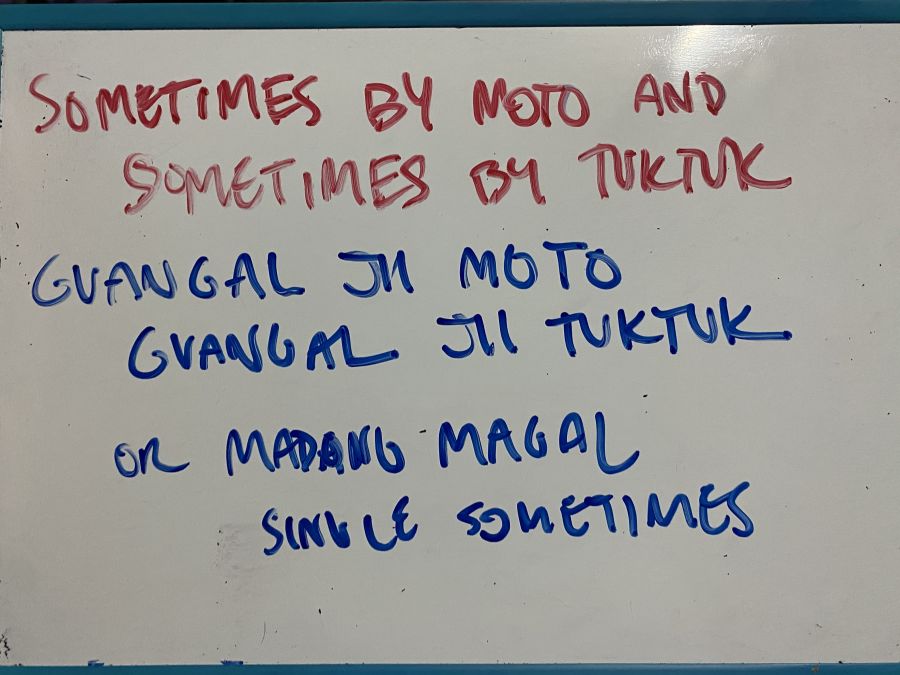 SOMETIMES BY MOTO AND
SOMETIMES BY TUKTUK
GVANGAL JII MOTO
GVANGAL JII TUKTUK
OR MADANG MAGAL
SINGLE SOMETIMES